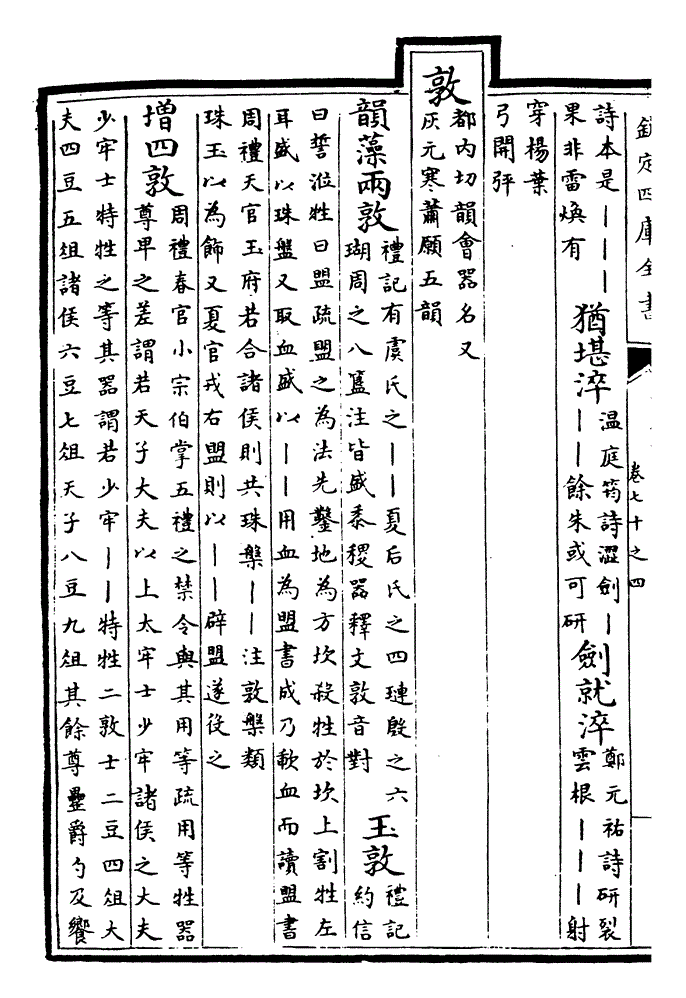 欽定四庫全書
卷七十之四
詩本是｜｜｜
果非雷煥有
猶堪淬
温庭筠詩澀劍｜
｜｜餘朱或可研
劍就淬
鄭元祐詩研裂
雲根｜｜｜射
穿楊葉
弓開弝
敦
都内切韻會器名又
灰元寒蕭願五韻
韻藻兩敦
禮記有虞氏之｜｜夏后氏之四璉殷之六
瑚周之八簋注皆盛黍稷器釋文敦音對
玉敦
禮記
約信
曰誓涖牲曰盟疏盟之為法先鑿地為方坎殺牲於坎上割牲左
耳盛以珠盤又取血盛以｜｜用血為盟書成乃歃血而讀盟書
周禮天官玉府若合諸侯則共珠槃｜｜注敦槃類
珠玉以為飾又夏官戎右盟則以｜｜辟盟遂役之
增四敦
周禮春官小宗伯掌五禮之禁令與其用等疏用等牲器
尊卑之差謂若天子大夫以上太牢士少牢諸侯之大夫
少牢士特牲之等其器謂若少牢｜｜特牲二敦士二豆四俎大
夫四豆五俎諸侯六豆七俎天子八豆九俎其餘尊罍爵勺及饗